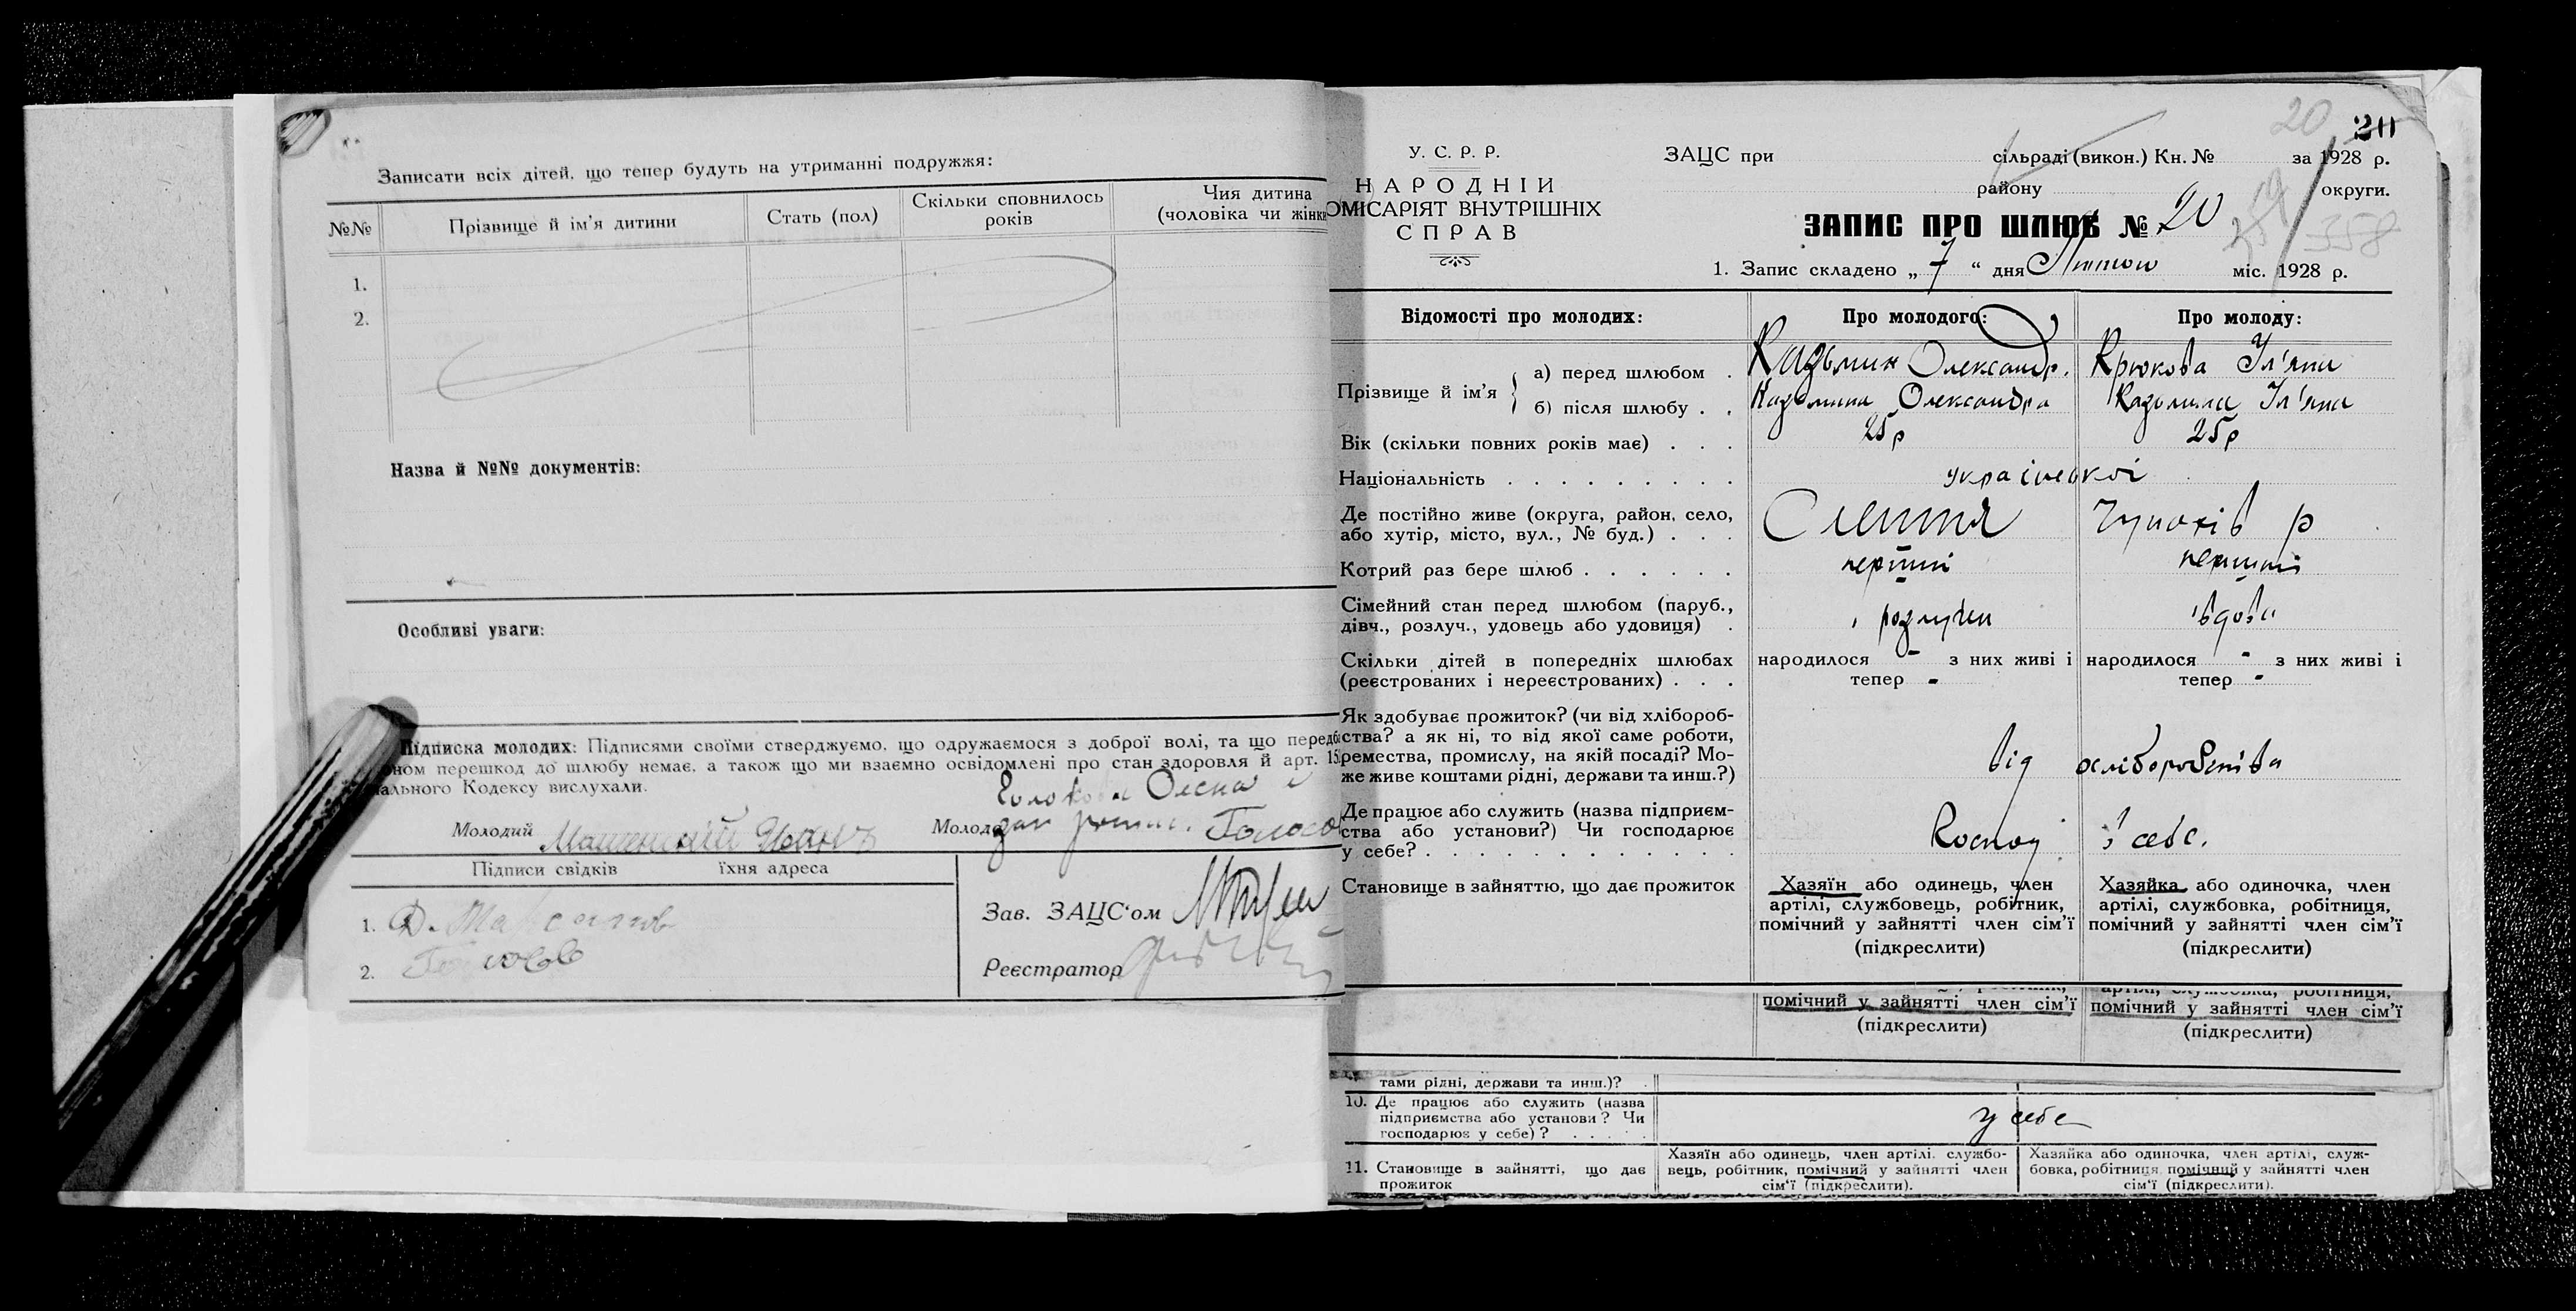 Записати всіх дітей, що тепер будуть на утриманні подружжя:
№№ Прізвище й ім'я дитини Стать (пол) Скільки сповнилось років Чия дитина (чоловіка чи жінки
1.
2.
Назва й №№ документів:
Особливі уваги:
Підписка молодих: Підписями своїми стверджуємо, що одружаємося з доброї волі, та що передб
ном перешкод до шлюбу немає, а також що ми взаємно освідомлені про стан здоровля й арт. 15
ального Кодексу вислухали.
Олена
Молодий Иванъ Молода
Підписи свідків їхня адреса
1. Д.
2.
Зав. ЗАЦС'ом
Реєстратор
20 20
У. С. Р. Р.
НАРОДНІЙ
ОМІСАРІЯТ ВНУТРІШНІХ
СПРАВ
ЗАЦС при сільраді (викон.) Кн. № за 1928 р.
району округи.
ЗАПИС ПРО ШЛЮБ № 20
358
1. Запис складено „ 7 “ дня міс. 1928 р.
Відомості про молодих: Про молодого: Про молоду:
Прізвище й ім'я
а) перед шлюбом . Казьмин Олександр. Крюкова Ул'яна
б) після шлюбу . . Казьмина Олександра Казьмина Ул'яна
Вік (скільки повних років має) . . . 25 р 25 р
Національність . . . . . . . . . української
Де постійно живе (округа, район, село,
або хутір, місто, вул., № буд.) . . . р
Котрий раз бере шлюб . . . . . . перший перший
Сімейний стан перед шлюбом (паруб.,
дівч., розлуч., удовець або удовиця) . розлучен вдова
Скільки дітей в попередніх шлюбах
(реєстрованих і нереєстрованих) . . .
народилося - з них живі і
тепер -
народилося - з них живі і
тепер -
Як здобуває прожиток? (чи від хлібороб-
ства? а як ні, то від якої саме роботи,
ремества, промислу, на якій посаді? Мо-
же живе коштами рідні, держави та инш.?)
від хліборобства
Де працює або служить (назва підприєм-
ства або установи?) Чи господарює
у себе? . . . . . . . . . . . .
у себе.
Становище в зайняттю, що дає прожиток
Хазяїн або одинець, член
артілі, службовець, робітник,
помічний у зайнятті член сім'ї
(підкреслити)
Хазяйка або одиночка, член
артілі, службовка, робітниця,
помічний у зайнятті член сім'ї
(підкреслити)
помічний у зайнятті член сім'ї
(підкреслити)
артілі, службовка, робітниця,
помічний у зайнятті член сім'ї
(підкреслити)
тами рідні, держави та инш.)?
10. Де працює або служить (назва
підприємства або установи? Чи
господарює у себе)? . . . . .
у себе
11. Становище в зайнятті, що дає
прожиток
Хазяїн або одинець, член артілі, службо-
вець, робітник, помічний у зайнятті член
сім'ї (підкреслити).
Хазяйка або одиночка, член артілі, служ-
бовка, робітниця, помічний у зайнятті член
сім'ї (підкреслити).